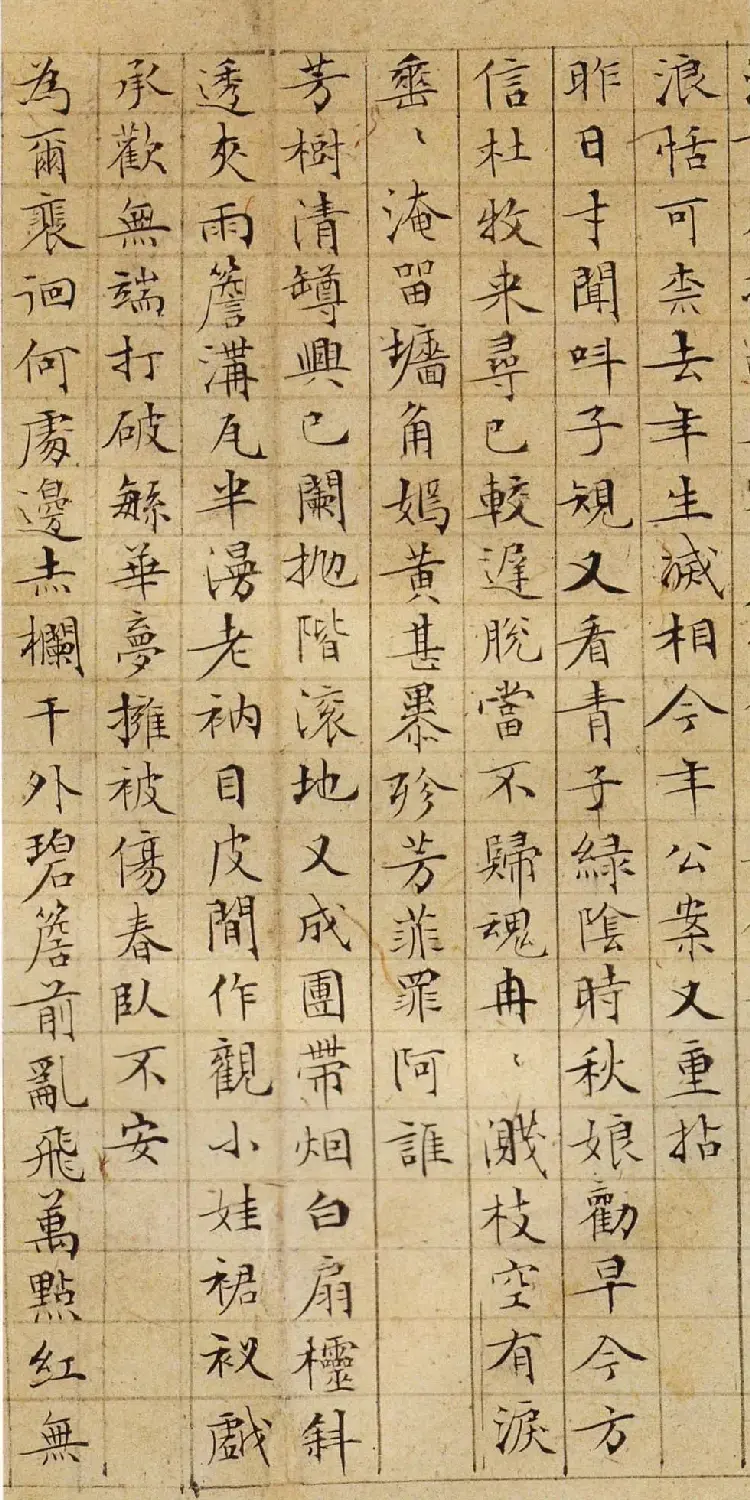 浪恬可柰去年生滅相今年公案又重拈
昨日才聞叫子規又看青子緑陰時秋娘勸早今方
信杜牧来尋已較遅脫當不歸魂冉〻濺枝空有淚
埀〻淹留墻角嫣黃甚暴殄芳菲罪阿誰
芳樹清罇興已闌抛階滚地又成團帶烟白扇櫺斜
透夾雨簷溝瓦半漫老衲目皮閒作觀小娃裙衩戲
承歡無端打破緐華夢擁被傷春臥不安
為爾裵徊何處邊赤欄干外碧簷前亂飛萬點紅無